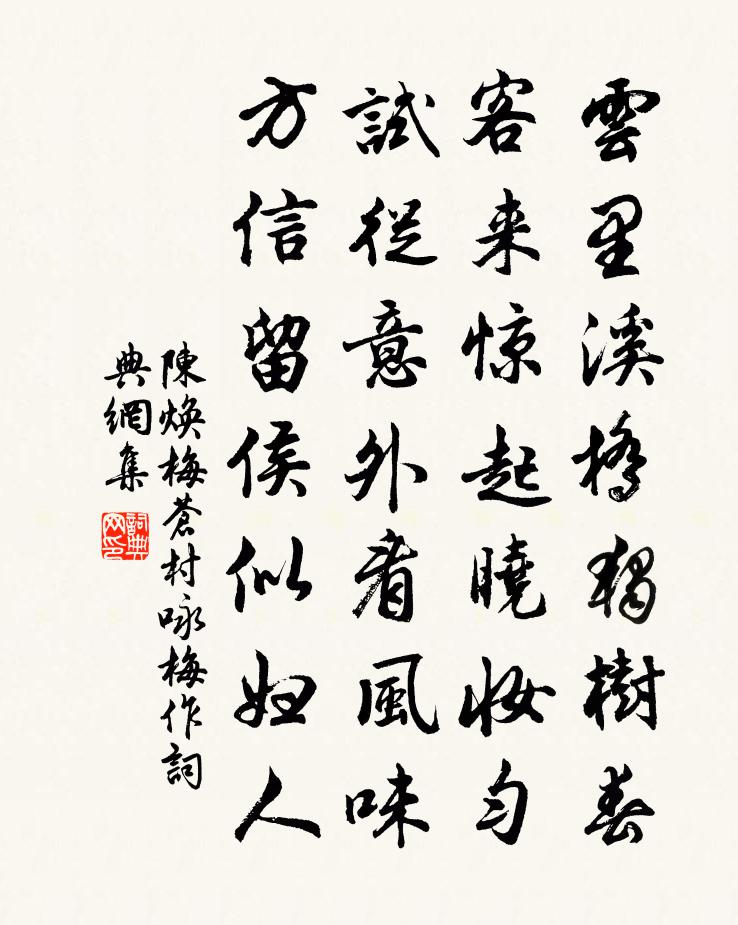 雲里溪橋獨樹春
客来惊起曉妆勻
試從意外看風味
方信留侯似婦人
陳焕梅蒼村咏梅作詞
典網集
詞典网印